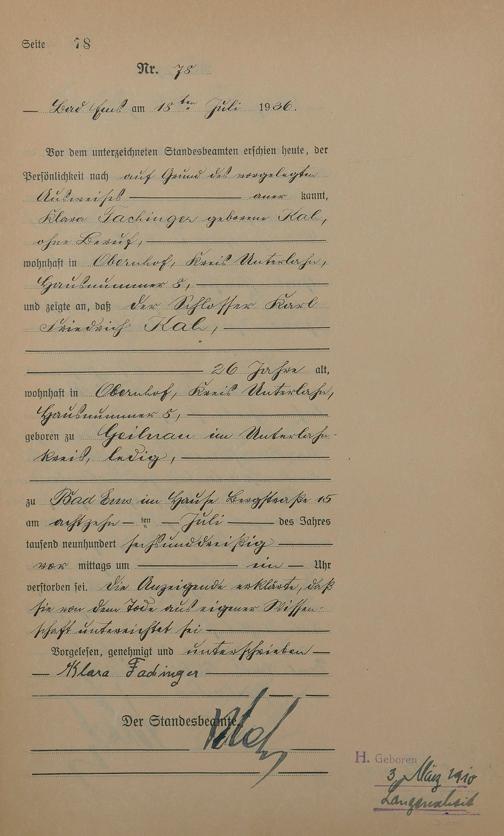 Seite 78
Nr. 78
Bad Ems am 18ten Juli 1936.
Vor dem unterzeichneten Standesbeamten erschien heute, der
Persönlichkeit nach auf Grund des vorgelegten
Ausweises aner kannt,
Klara Fachinger geborene Kal,
ohne Beruf,
wohnhaft in Obernhof, Kreis Unterlahn,
Hausnummer 5,
und zeigte an, daß der Schlosser Karl
Friedrich Kal,
26 Jahre alt,
wohnhaft in Obernhof, Kreis Unterlahn,
Hausnummer 5,
geboren zu Geilnau im Unterlahn-
kreis, ledig,
zu Bad Ems im Hause Bergstraße 15
am achtzehn ten Juli des Jahres
tausend neunhundert sechsunddreißig
vor mittags um ein Uhr
verstorben sei. Die Anzeigende erklärte, daß
sie von dem Tode aus eigener Wissen-
schaft unterrichtet sei
Vorgelesen, genehmigt und unterschrieben
Klara Fachinger
Der Standesbeamte
H. Geboren
3. März 1910